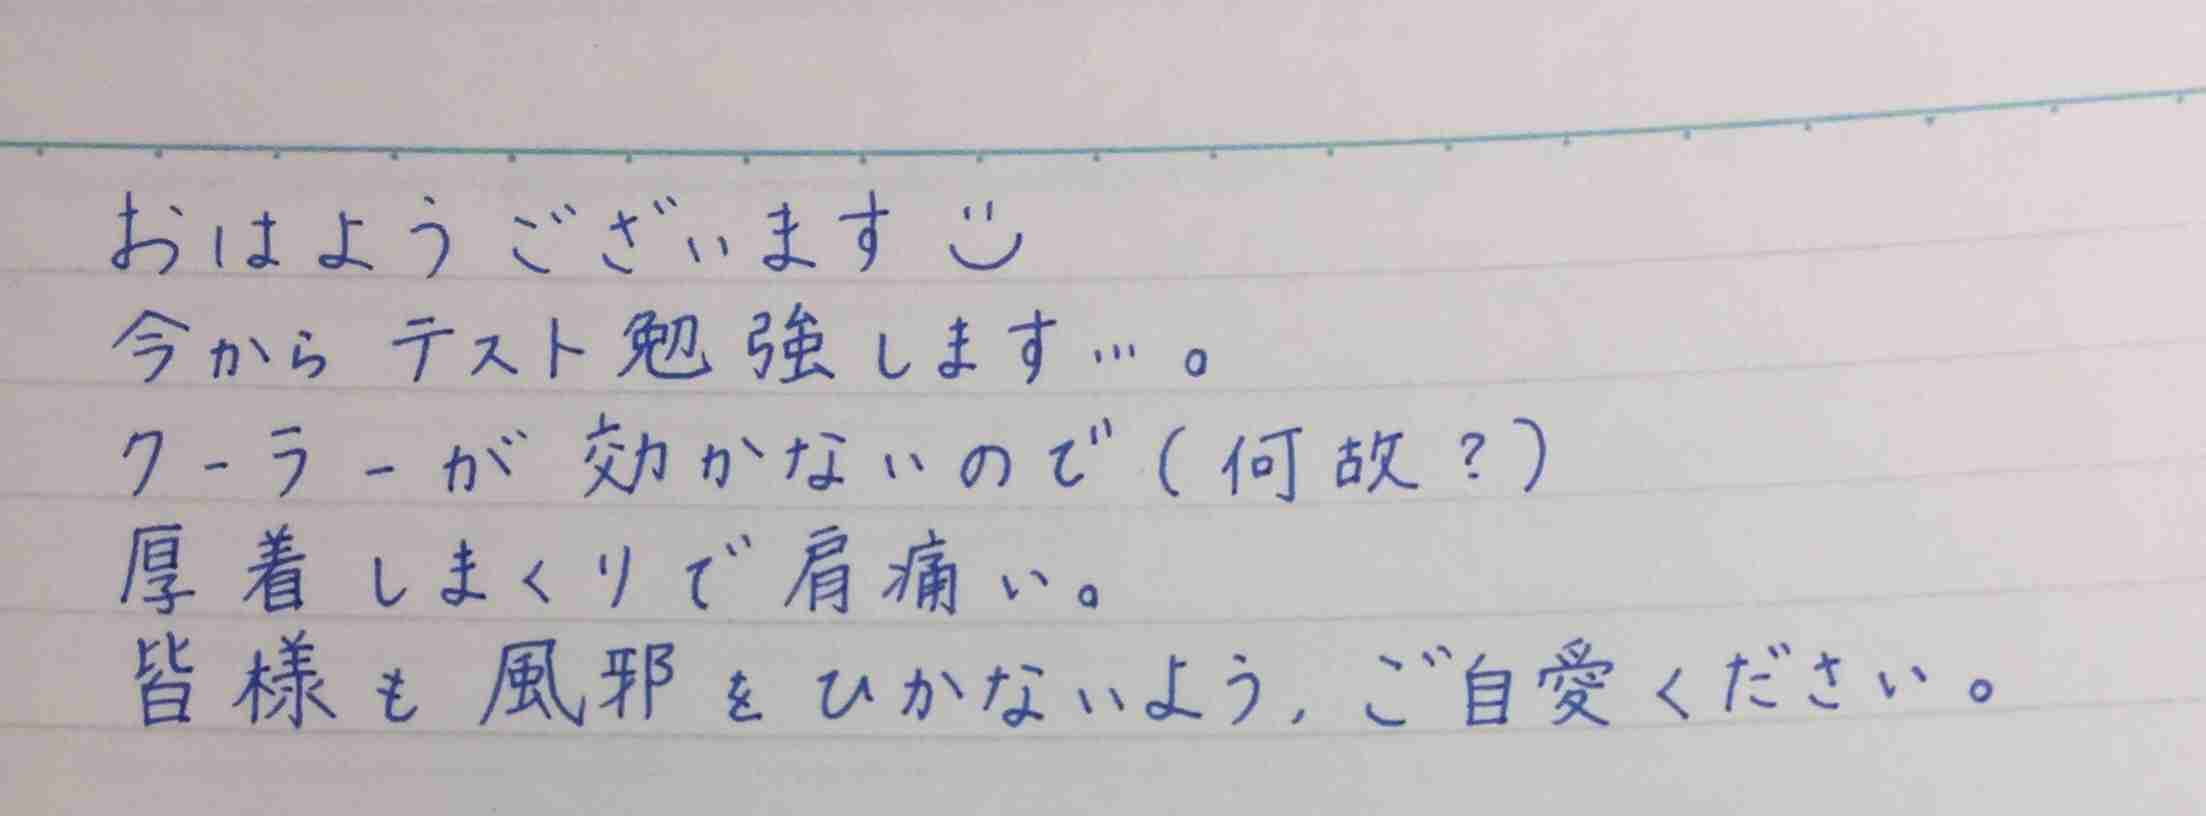 おはようございます
今からテスト勉強します…。
クーラーが効かないので(何故?)
厚着しまくりで肩痛い。
皆様も風邪をひかないよう,ご自愛ください。